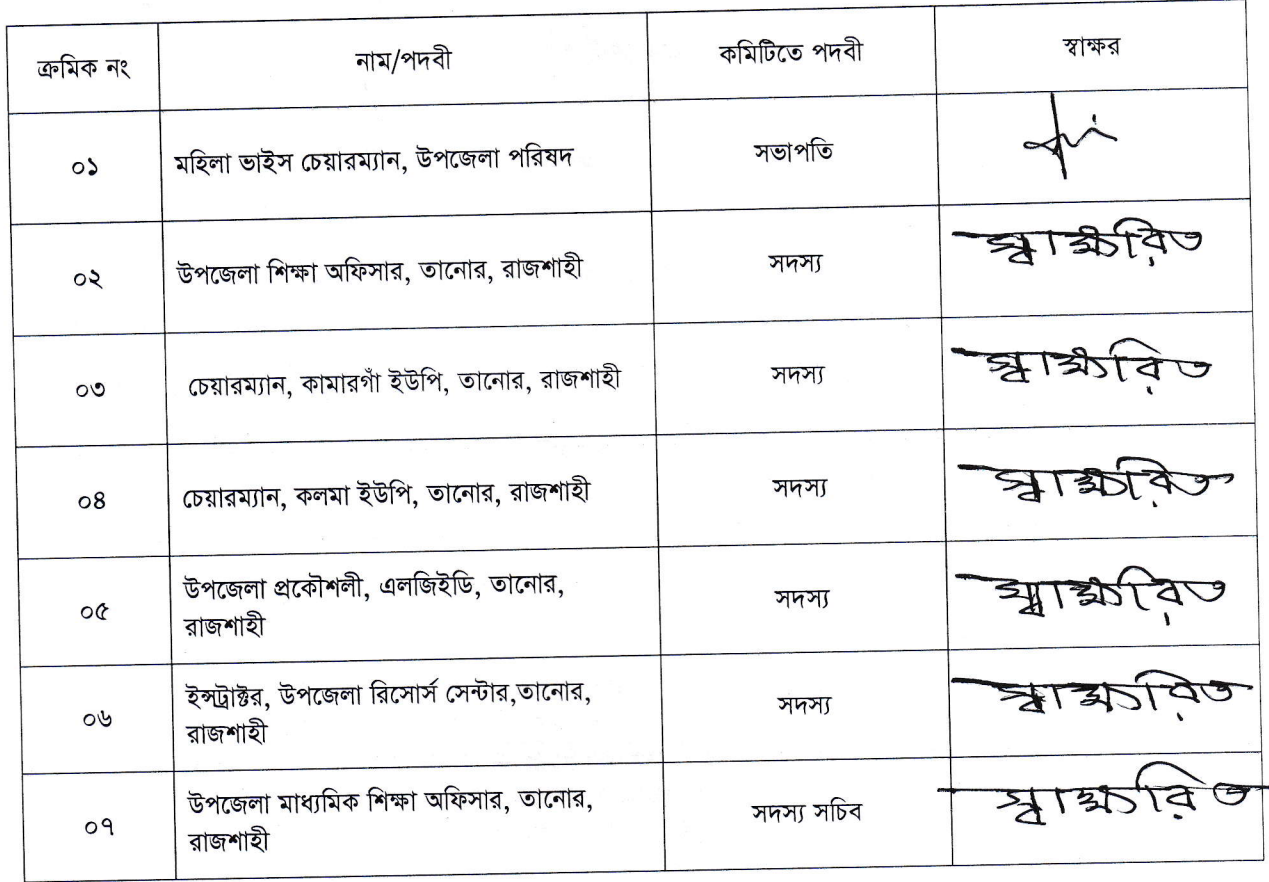 ক্রমিক নং নাম/পদবী কমিটিতে পদবী স্বাক্ষর
০১ মহিলা ভাইস চেয়ারম্যান, উপজেলা পরিষদ সভাপতি
০২ উপজেলা শিক্ষা অফিসার, তানোর, রাজশাহী সদস্য স্বাক্ষরিত
০৩ চেয়ারম্যান, কামারগাঁ ইউপি, তানোর, রাজশাহী সদস্য স্বাক্ষরিত
০৪ চেয়ারম্যান, কলমা ইউপি, তানোর, রাজশাহী সদস্য স্বাক্ষরিত
০৫ উপজেলা প্রকৌশলী, এলজিইডি, তানোর,
রাজশাহী সদস্য স্বাক্ষরিত
০৬ ইন্সট্রাক্টর, উপজেলা রিসোর্স সেন্টার,তানোর,
রাজশাহী সদস্য স্বাক্ষরিত
০৭ উপজেলা মাধ্যমিক শিক্ষা অফিসার, তানোর,
রাজশাহী সদস্য সচিব স্বাক্ষরিত